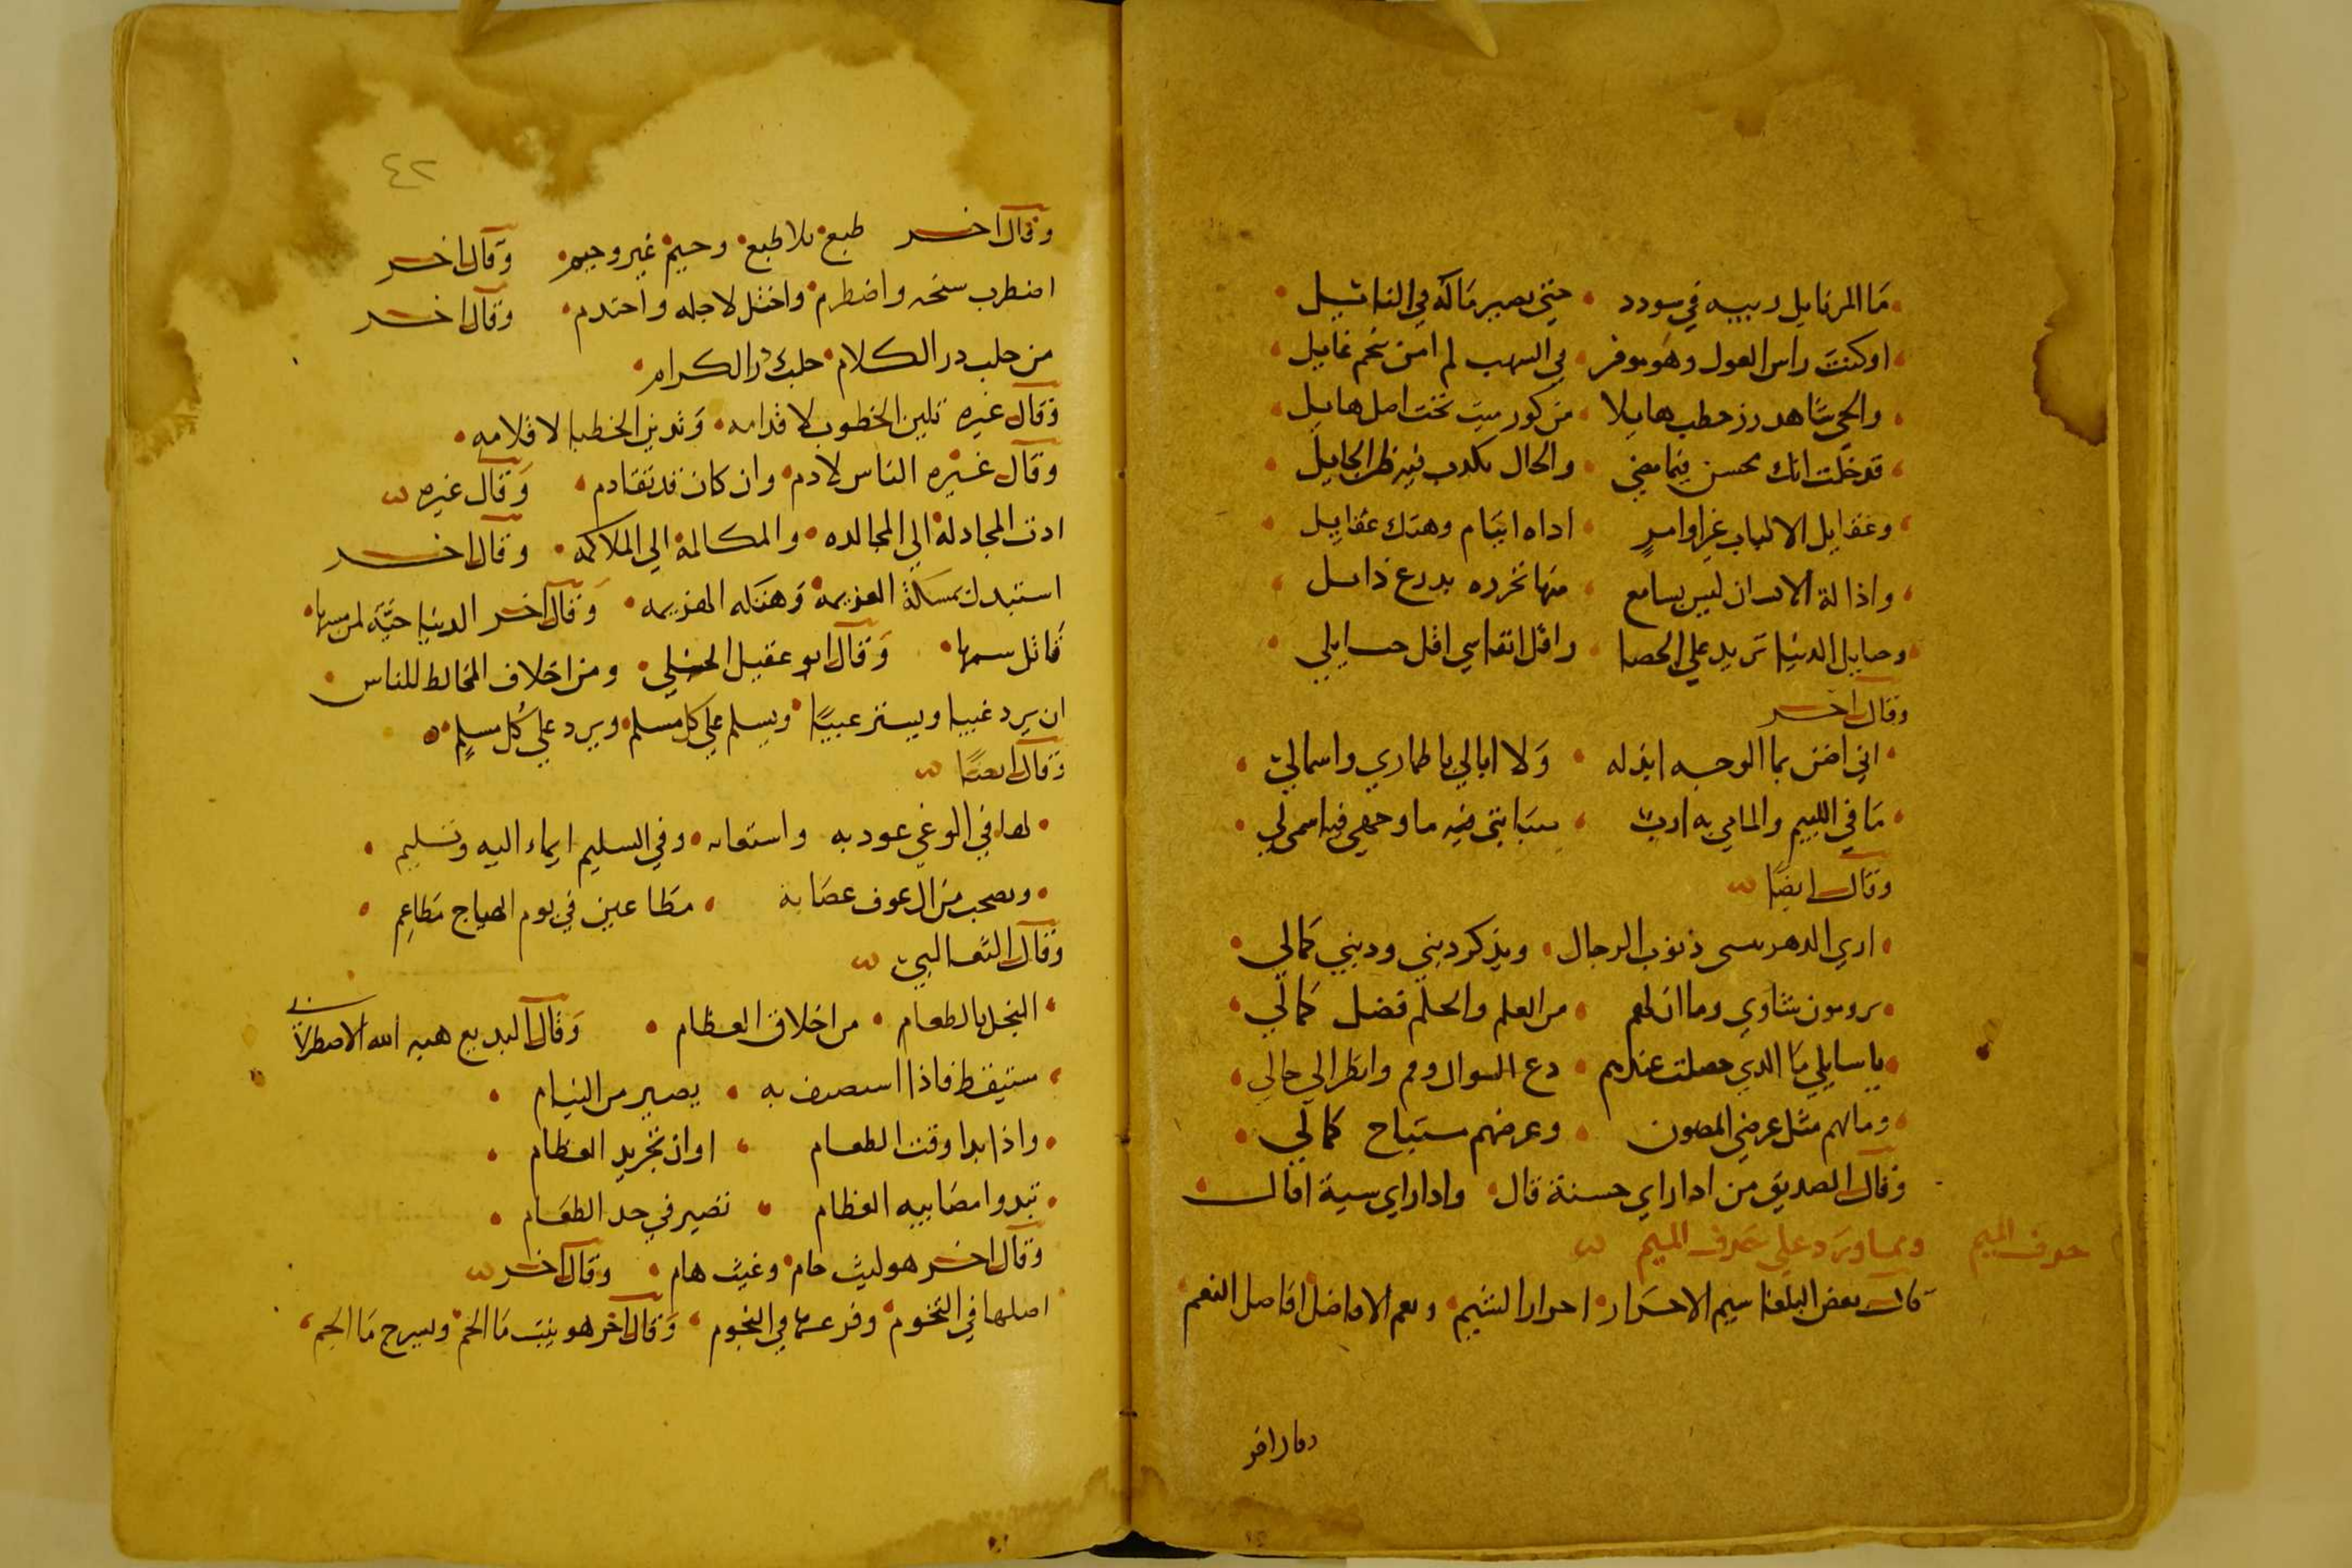 ما المرنايل دبيبه في سودد • حتي يصير ماله في النائيل
اوكنت راس الغول وهو موفر • في السهب لم امن نجم غايل
والحي شاهد رزحطب هابلا • من كور ميت تحت اصل هابل
قد خلت انك محسن فيما مضي • والحال يكدب في نظر الجايل
وعقايل الالباب غر اوامر • اداه ايتام وهتك عقايل
واذالة الانسان ليس بسامع • منها تخرده بدرع ذايل
وحبايل الدنيا تزيد علي الحصا • واقل انفاسي اقل حبايلي
وقال اخر
اني اضن بما الوجه ابذله • ولا ابالي باطماري واسمالي
ما في اللييم والمالي به ارب • سبابتي فيه ما وجهي فيه اسمي لي
وقال ايضا
اري الدهر ينسي ذنوب الرجال • ويذكر ديني وديني كمالي
يرومون شاوي وما ان لهم • من العلم والحلم فضل كمالي
يا سايلي ما الدي حصلت عندهم • دع السوال وقم وانظر الي حالي
ومالهم مثل عرضي المصون • وعرضهم مستباح كمالي
وقال الصديق من ادا راي حسنة قال • وادا راي سية اقال
حرف الميم
ومما ورد علي حرف الميم
قال بعض البلغا سيم الاحرار • احرار الشيم • ونعم الافاضل افاضل النعم
وقال اخر
٤٢
وقال اخر طبع بلا طبع • وحيم غير وحيم • وقال اخر
اضطرب سخه واضطرم • واختل لاجله واحتدم • وقال اخر
من حلب در الكلام • حلب در الكرام •
وقال غيره تلين الخطوب لاقدامه • وتدين الخطبا لاقلامه •
وقال غيره الناس لادم • وان كان قد تقادم • وقال غيره
ادت المجادلة الي المجالده • والمكالمة الي الملاكمه • وقال اخر
استبدل بمسكة العزيمة وهتكه الهزيمه • وقال اخر الدنيا حية لمن مسها •
قاتل سمها • وقال ابو عقيل الحنبلي • ومن اخلاف المخالط للناس
ان يرد غيبا ويستر عيبا • ويسلم علي كل مسلم • ويرد علي كل مسلم •
وقال ايضا
لها في الوغي عود به واستعانه • وفي السليم ايماء اليه وتسليم •
وصحب من ال عوف عصابة • مطاعين في يوم الهياج مطاعم •
وقال الثعالبي
البخل بالطعام • من اخلاق العظام • وقال البديع هبه الله الاصطرلابي
مستيقظ فاذا استضيف به • يصير من النيام •
واذا بدا وقت الطعام • اوان تجريد العظام •
تبدوا مصابيه العظام • تصير في حد الطعام •
وقال اخر هو ليث حام • وغيث هام • وقال اخر
اصلها في التخوم • وفرعها في النجوم • وقال اخر هو ينبت ما الحم • ويسرج ما الجم •